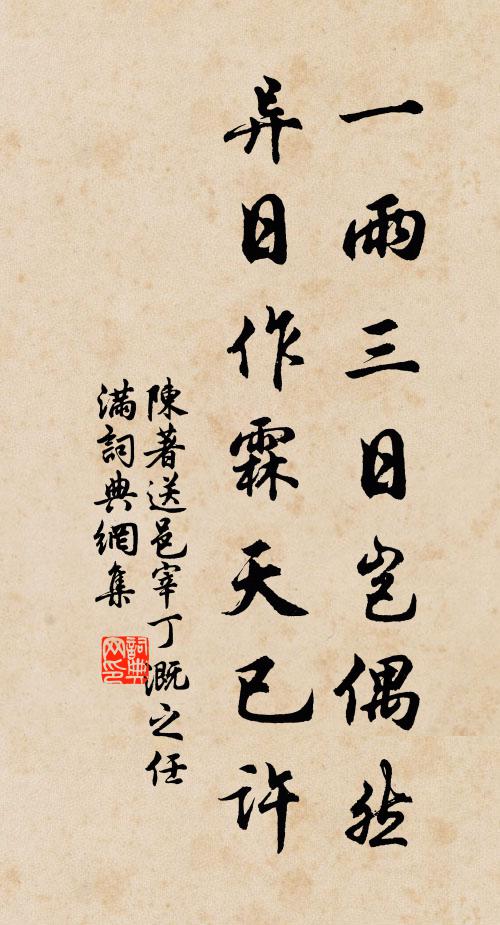 一雨三日豈偶然
异日作霖天已許
陳著送邑宰丁溉之任
滿詞典網集
詞典网印